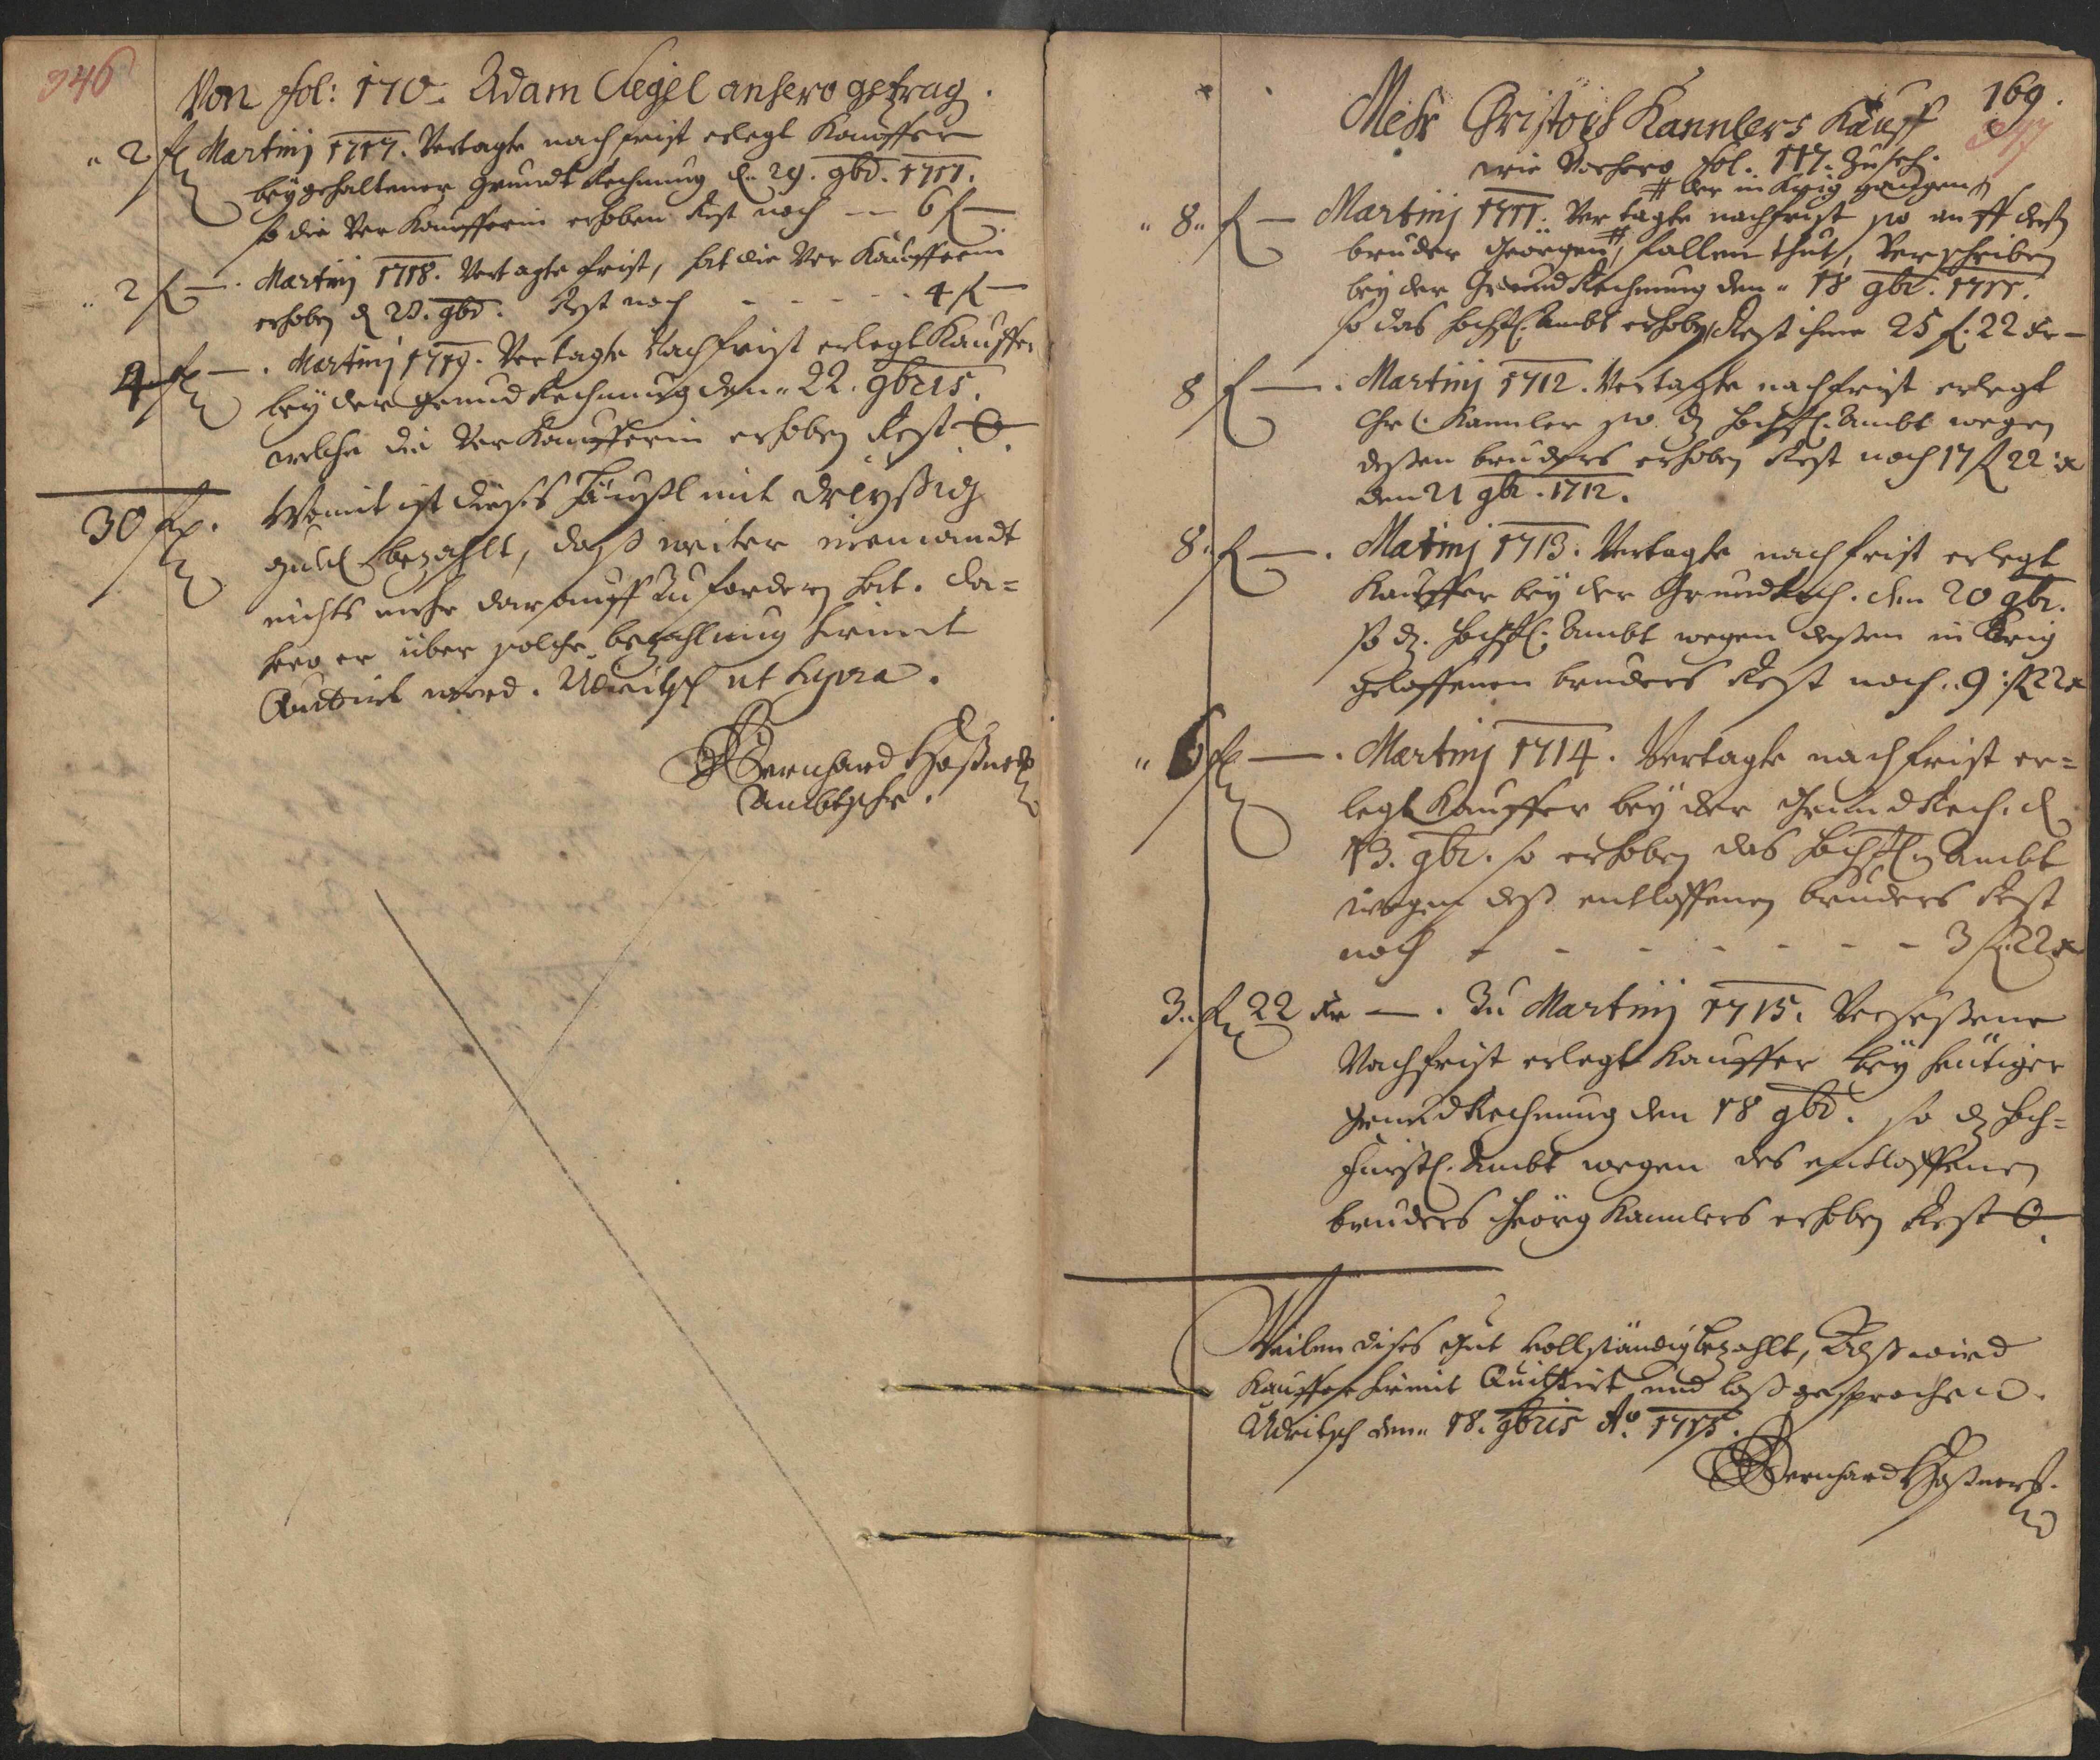 946
Von fol: 170. Adam Siegel anhero getrag.
" 2 fl Martinj 1717. Vertagte nachfrist erlegt Kauffer
beÿ gehaltener Grundt Rechnung d. 29. 9br. 1717.
so die Verkaufferin erhoben Rest noch — 6 fl —
" 2 fl — . Martinj 1718. Vertagte frist, hat die Verkäufferin
erhoben d 28. 9br. Rest noch - - - - - 4 fl —
4 fl — . Martinj 1719. Vertagte Nachfrist erlegt Kauffer
beÿ der Grund Rechnung den " 22. 9bris.
welche die Verkaufferin erhoben Rest 0.
30 fl. Womit ist dieses Häußl mit dreÿssig
guld bezahlt, dass weiter niemandt
nichts mehr darauff zu fordern hat. da=
hero er über solche bezahlung hiemit
Quittirt word. Udritsch ut supra.
Bernhard Hoßner
Ambtschr.
169.
947
Mehr Christoph Kannlers Kauff
wie Vorhero fol. 117. zu seh.
# der in Krig gangen #
" 8 " fl — Martinj 1711. Vertagte nachfrist so auff deß
bruder Georgen # fallen thut, Verschriben
beÿ der Grund Rechnung den " 18 9br. 1711.
so das hochfl. Ambt erhoben, Rest ihme 25 fl. 22 xr —
8 fl — . Martinj 1712. Vertagte nachfrist erlegt
Chr. Kannler so dz hochfl. Ambt wegen
dessen bruders erhoben Rest noch 17 fl 22 x
den 21 9br. 1712.
8 " fl — . Matinj 1713. Vertagte nachfrist erlegt
Kauffer beÿ der Grund Rech. den 20 9br.
so dz. hochfl. Ambt wegen dessen in Krig
geloffenen bruders Rest noch " 9 fl 22 x
" 6 fl — . Martinj 1714. Vertagte nachfrist er=
legt Kauffer beÿ der Grund Rech. d
13. 9br. so erhoben das hochfl. Ambt
wegen deß entloffenen bruders Rest
noch - - - - - - - 3 fl 22 x
3 " fl 22 xr — . Zu Martinj 1715. Versessene
Nachfrist erlegt Kauffer beÿ heütiger
Grund Rechnung den 18 9br. so dz hoch=
fürstl. Ambt wegen des entloffenen
bruders Geörg Kannlers erhoben Rest 0.
Weilen dises Gut vollständig bezahlt, Alß wird
Kauffer hiemit Quittirt und loß gesprochen.
Udritsch den " 18. 9bris Ao. 1715.
Bernhard Hoßner